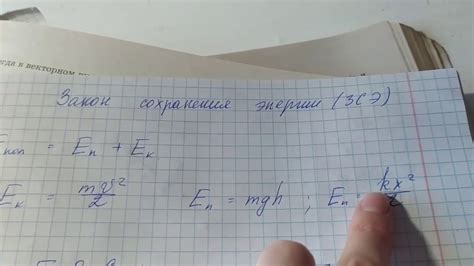 в векторном
Закон сохранения энергии (ЗСЭ)
Eпол = Eп + Eк
Eк = mv²/2 Eп = mgh ; Eп = kx²/2